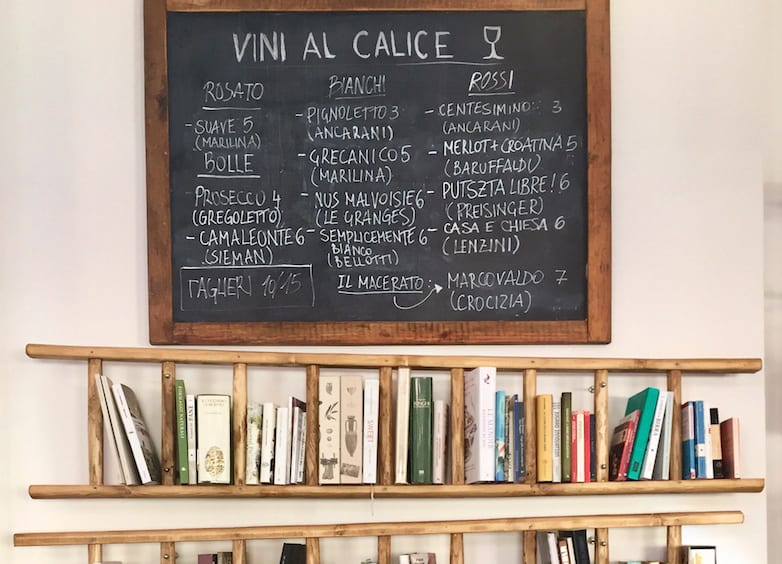 VINI AL CALICE
ROSATO
- SUAVE 5
(MARILINA)
BOLLE
- PROSECCO 4
(GREGOLETTO)
- CAMALEONTE 6
(SIEMAN)
TAGLIERI 10/15
BIANCHI
- PIGNOLETTO 3
(ANCARANI)
- GRECANICO 5
(MARILINA)
- NUS MALVOISIE 6
(LE GRANGES)
- SEMPLICEMENTE 6
BIANCO
(BELLOTTI)
IL MACERATO:
ROSSI
- CENTESIMINO: 3
(ANCARANI)
- MERLOT + CROATINA 5
(BARUFFALDI)
- PUTSZTA LIBRE! 6
(PREISINGER)
- CASA E CHIESA 6
(LENZINI)
MARCOVALDO 7
(CROCIZIA)
SWEET